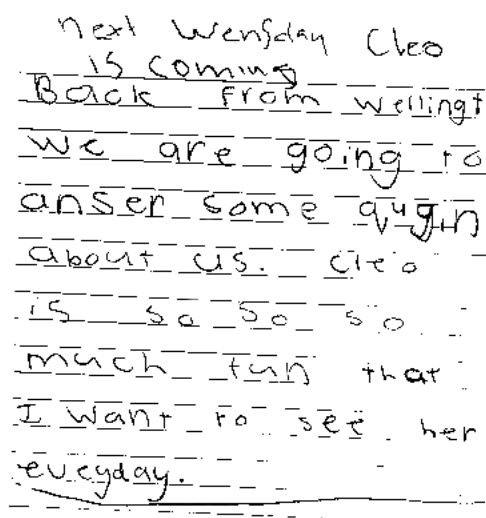 next Wensday Cleo
is coming
Back from wellingt
we are going to
anser some qugin
about us. cleo
is so so so
much fun that
I want to see her
eveyday.